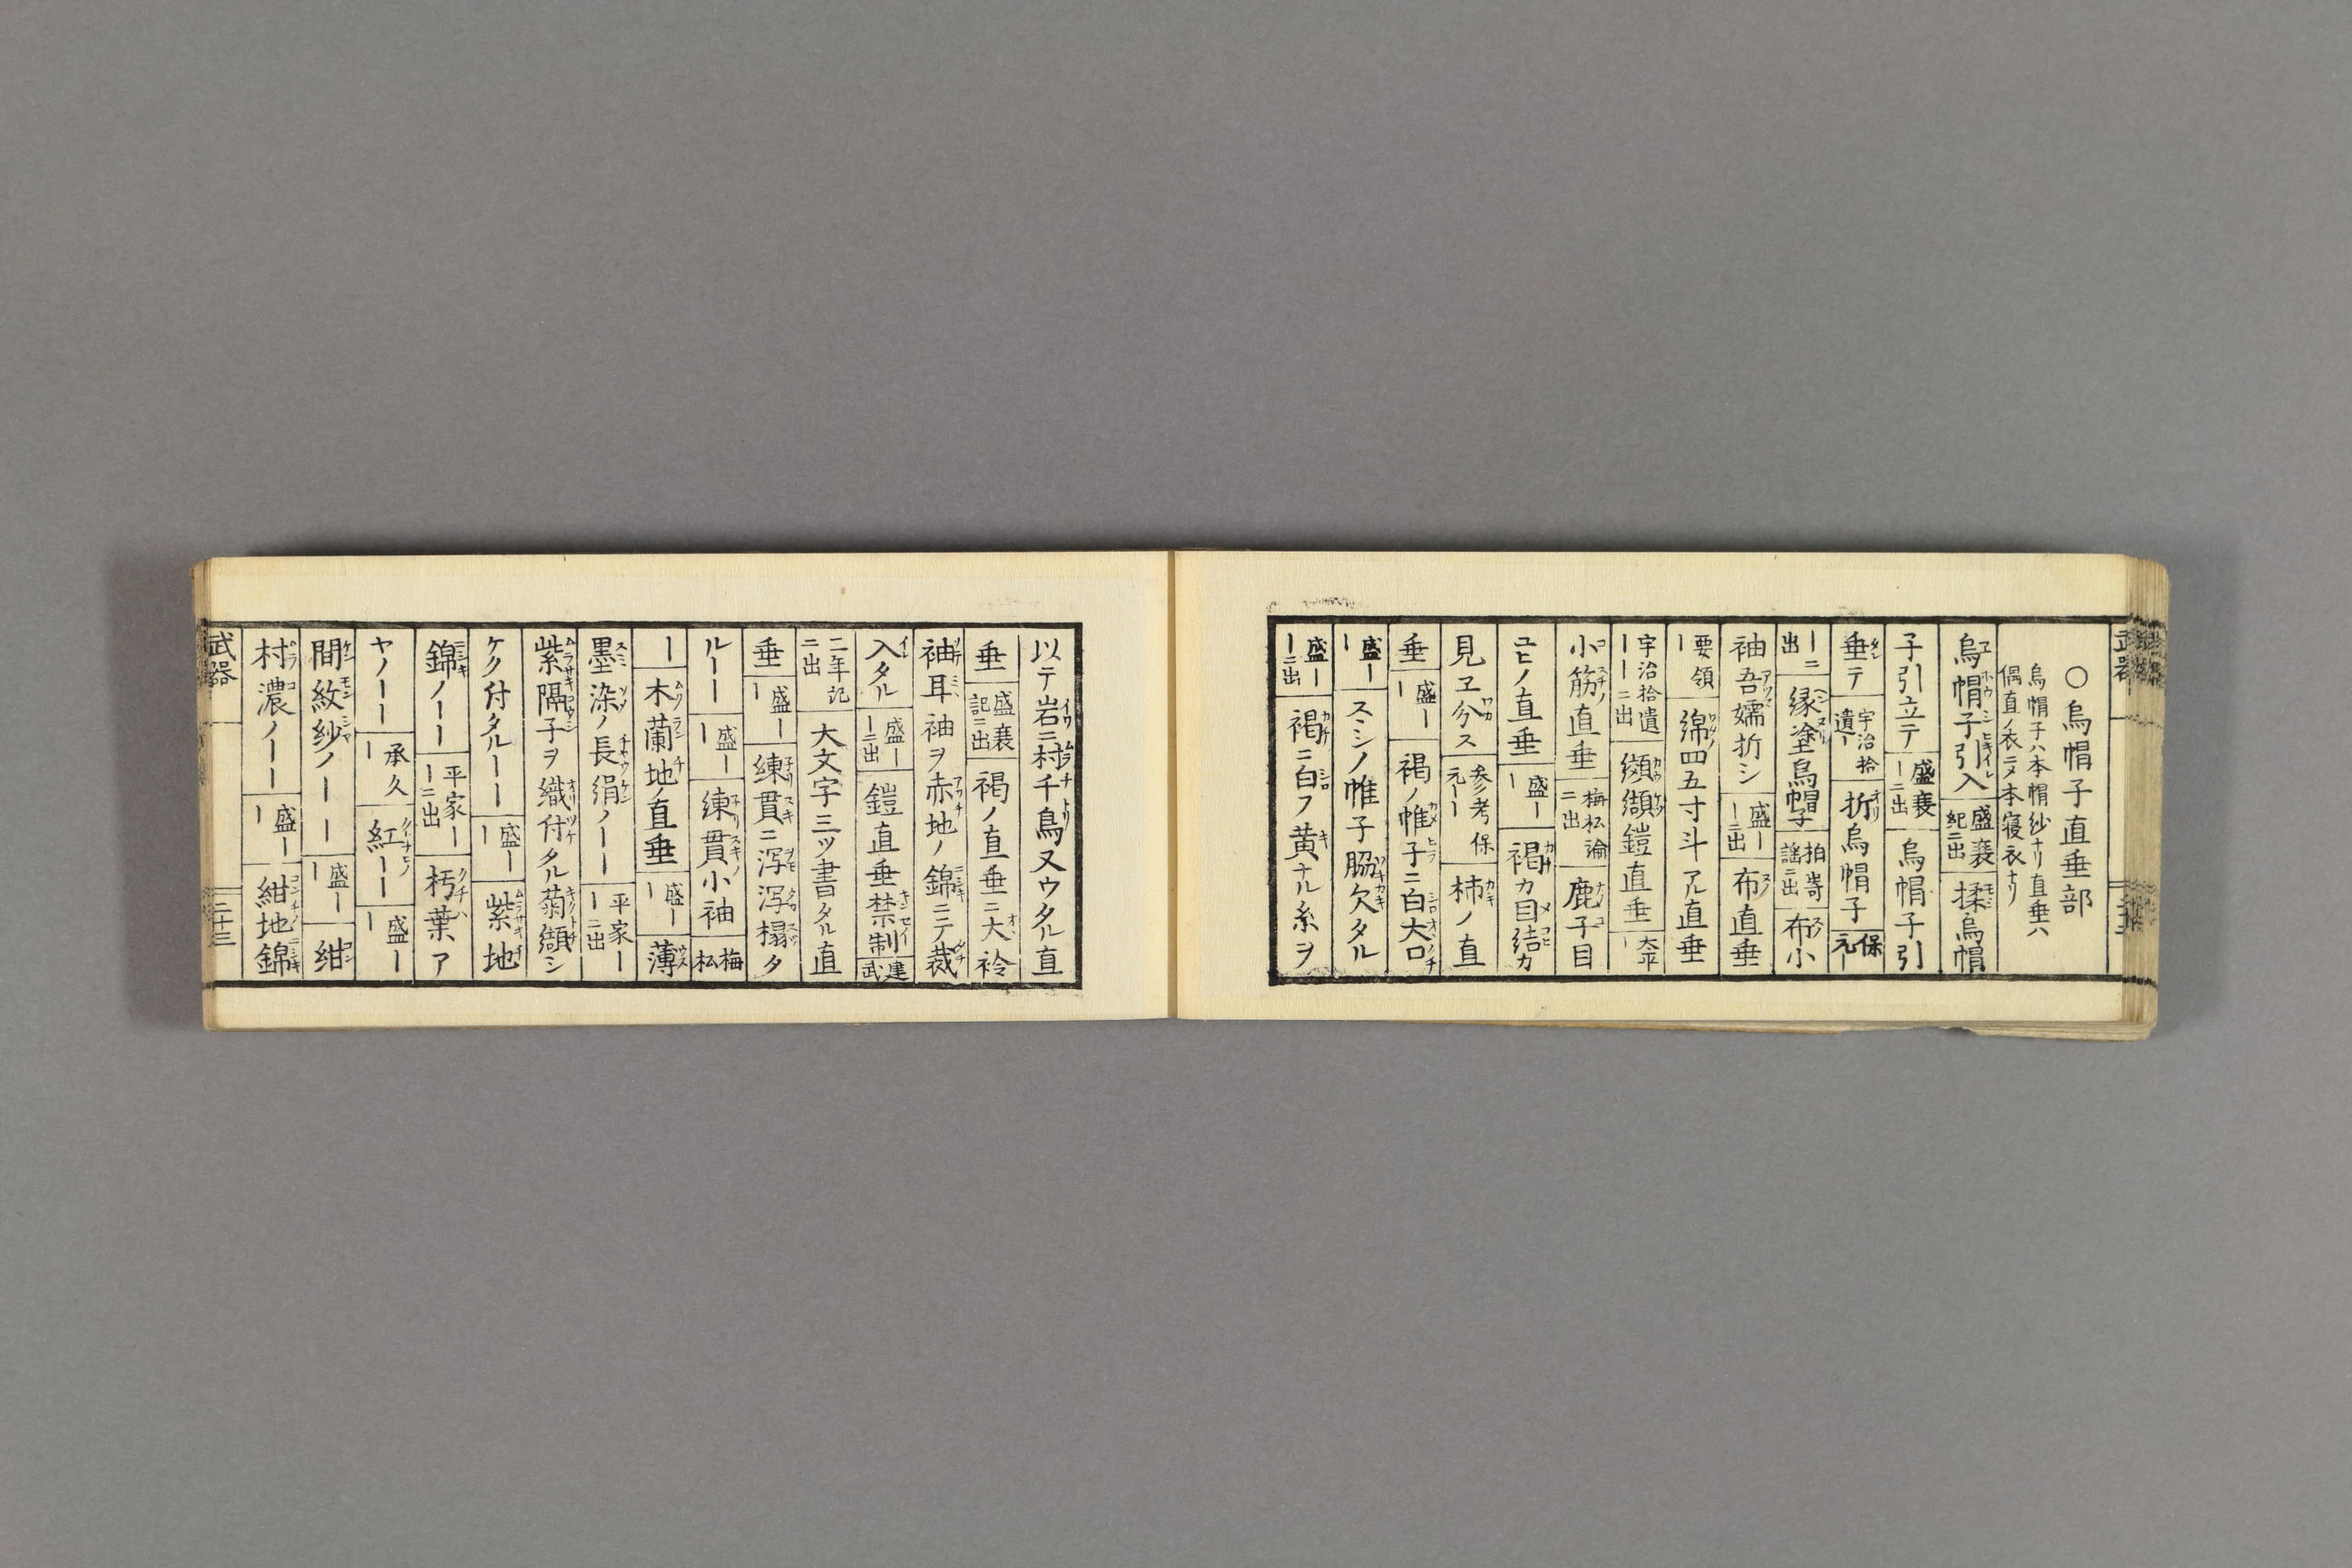 ○烏帽子直垂部
烏帽子ハ本帽紗ナリ直垂ハ
偶直ノ衣ニヌ本寝衣ナリ
烏帽子引入 盛衰紀ニ出 揉烏帽
子引立テ 盛衰ーニ出 烏帽子引
垂テ 宇治拾遺ー 折烏帽子 保元ー
ーニ出 縁塗烏帽子 拍嵜謡ニ出 布小
袖吾嬬折シ 盛ーニ出 布直垂
要領ー 綿四五寸斗アル直垂
宇治拾遺ーーニ出 纐纈鎧直垂 太平ー
小筋ノ直垂 梅松論ニ出 鹿子目
ユヒノ直垂 盛ーー 褐カ目結カ
見ヱ分ス 参考保元ーー 柿ノ直
垂 盛ーー 褐ノ帷子ニ白大口
盛ーー スミシノ帷子脇欠タル
盛ーーニ出 褐ニ白フ黄ナル糸ヲ
以テ岩ニ村千鳥又ウタル直
垂 盛衰記ニ出 褐ノ直垂ニ大衿
袖耳袖ヲ赤地ノ錦ニテ裁
入タル 盛ーーニ出 鎧直垂禁制 建武
二年記ニ出 大文字三ツ書タル直
垂 盛ーー 練貫ニ澤瀉榻タ
ルーー 盛ーー 練貫ノ小袖 梅松
ー 木蘭地ノ直垂 盛ーー 薄
墨染ノ長絹ノーー 平家ーーニ出
紫隔子ヲ織付タル菊綴シ
ケク付タルーー 盛ーー 紫地
錦ノーー 平家ーーニ出 朽葉ア
ヤノーー 承久ー 紅ーー 盛ーー
間紋紗ノーー 盛ーー 紺
村濃ノーー 盛ーー 紺地錦
武器 二十三